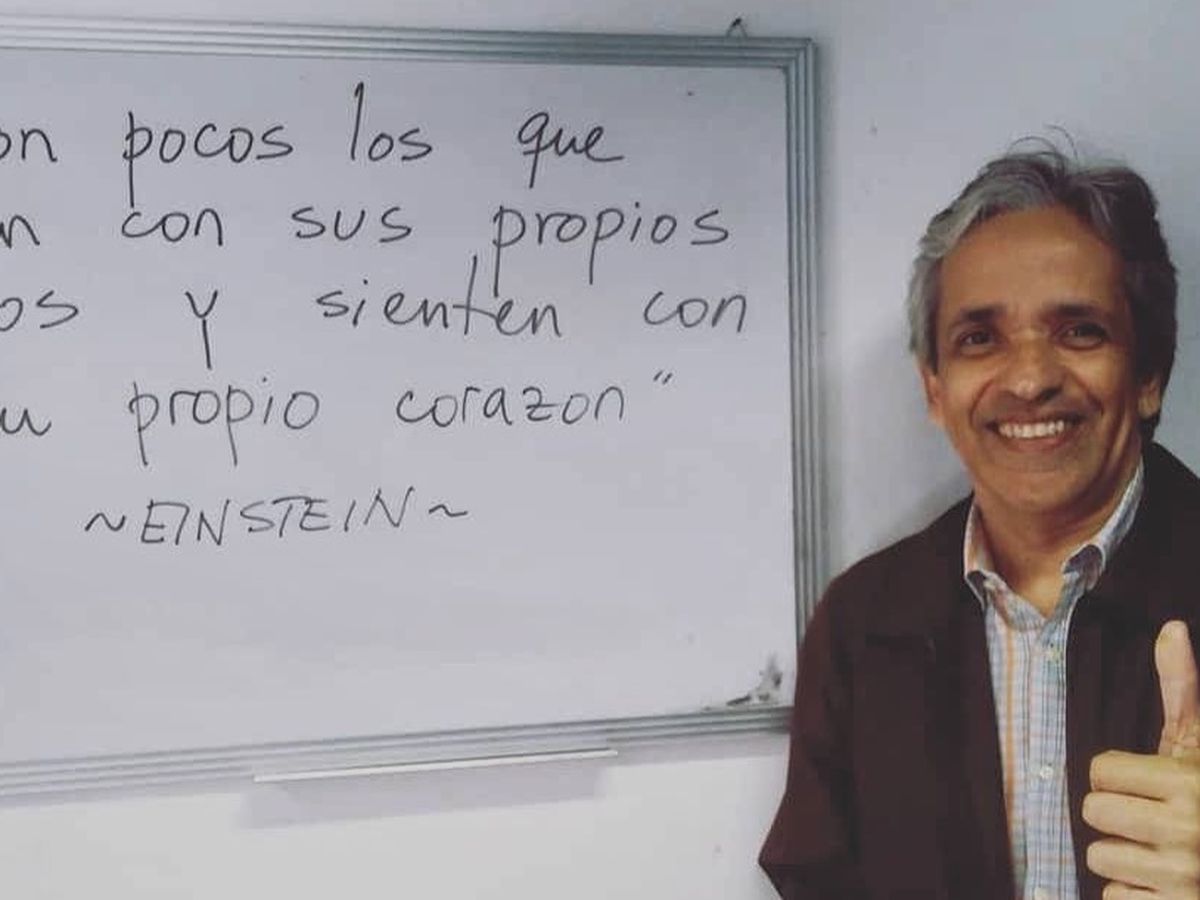 on pocos los que
n con sus propios
os y sienten con
u propio corazon"
~EINSTEIN~